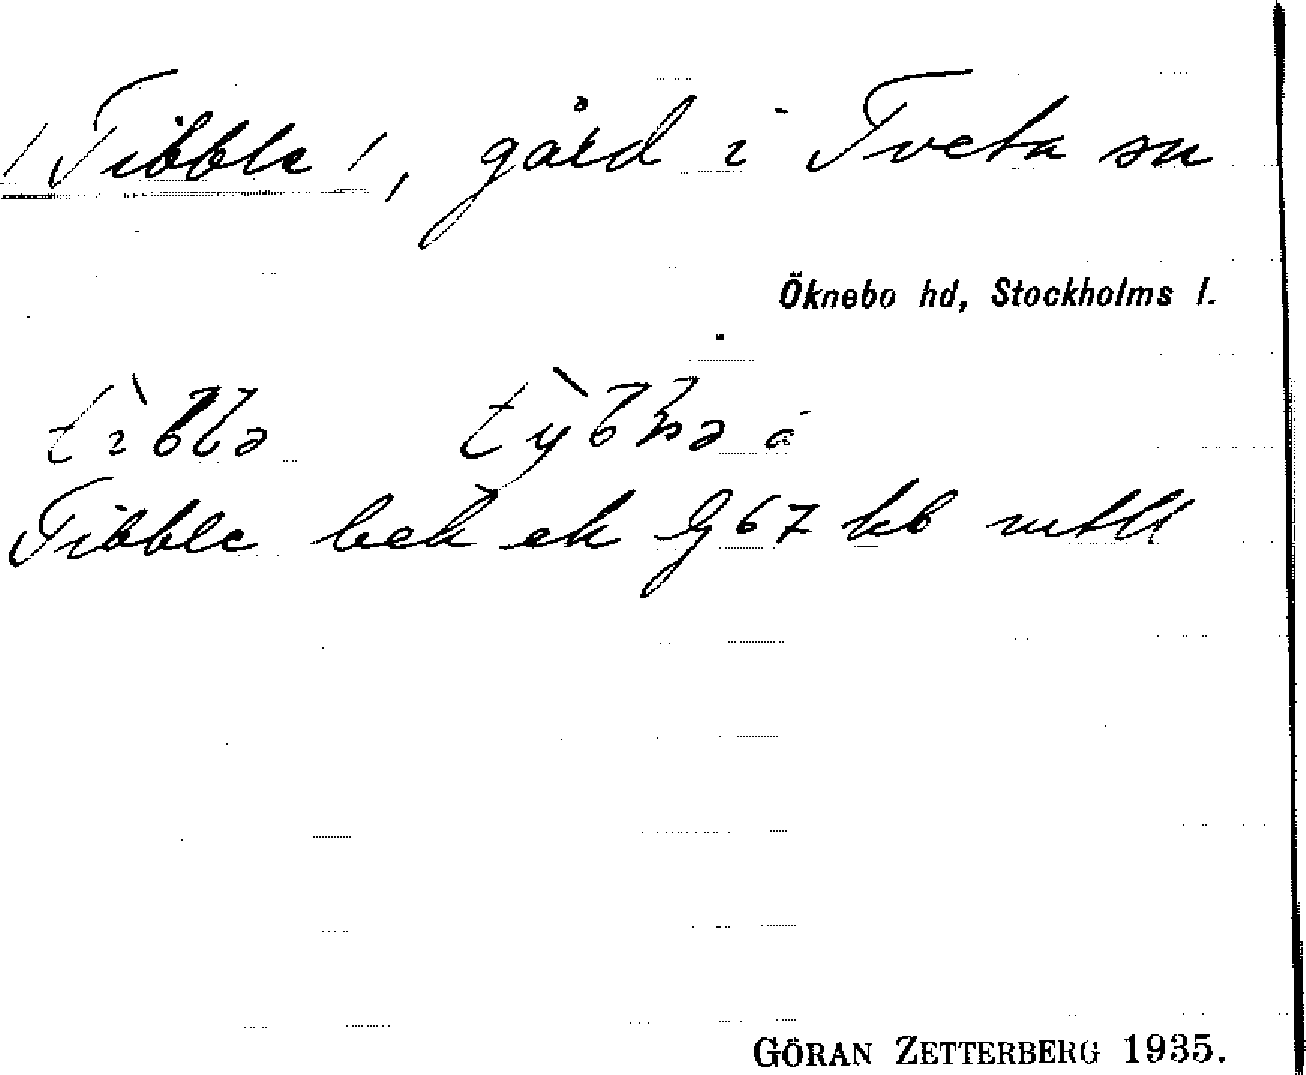 /Tibble/, gård i Tveta sn
Öknebo hd, Stockholms l.
tìbblə tỳbblə å
Tibble bek ek G 67 kb
GÖRAN ZETTERBERG 1935.